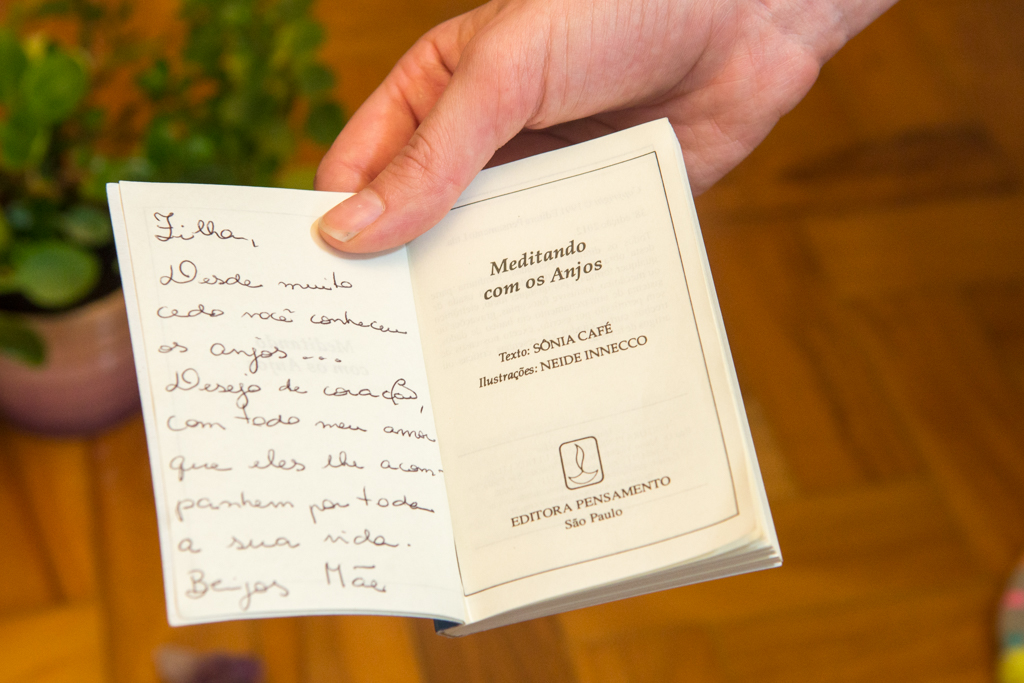 Filha,
Desde muito
cedo você conheceu
os anjos...
Desejo de coração,
com todo meu amor
que eles lhe acom-
panhem por toda
a sua vida.
Beijos Mãe
Meditando
com os Anjos
Texto: SÔNIA CAFÉ
Ilustrações: NEIDE INNECCO
EDITORA PENSAMENTO
São Paulo